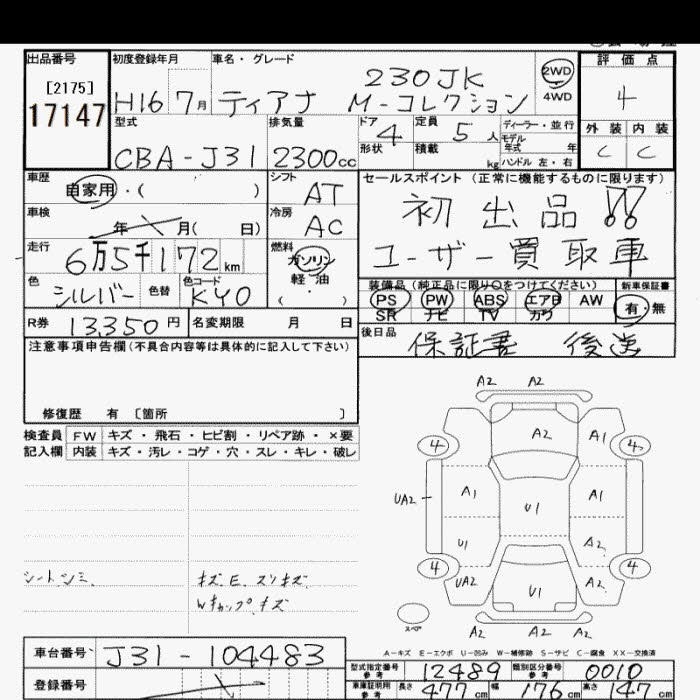 出品番号 初度登録年月 車名・グレード 2WD 4WD 評価点
[2175] 17147 H16 7月 ティアナ 230JK M-コレクション 4
型式 排気量 ドア 4 定員 5人 ディーラー・並行 外装 内装
CBA-J31 2300cc 形状 積載 kg モデル年式 年 ハンドル 左・右 C C
車歴 自家用・( ) シフト AT セールスポイント (正常に機能するものに限ります)
車検 年 月( 日) 冷房 AC 初出品!!
走行 6万5千172km 燃料 ガソリン 軽・油 ( ) ユーザー買取車
色 シルバー 色替 色コード KY0 装備品 (純正品に限り○をつけてください) 新車保証書
PS PW ABS エアB AW 有・無
SR ナビ TV カワ
R券 13350円 名変期限 月 日 後日品 保証書 後送
注意事項申告欄(不具合内容等は具体的に記入して下さい)
修復歴 有 〔箇所 〕
検査員 FW キズ・飛石・ヒビ割・リペア跡・×要
記入欄 内装 キズ・汚レ・コゲ・穴・スレ・キレ・破レ
A2 A2
A2 A1
4 4
UA2 A1 U1 A1
U1 A2
4 4
UA2 U1 A2
A2 A2
スペア
シートシミ キズE スリキズ
Wキャップキズ
A-キズ E-エクボ U-凹み W-補修跡 S-サビ C-腐食 XX-交換済
車台番号 J31-104483
登録番号
型式指定番号 参考 12489 類別区分番号 参考 0010
車庫証明用 参考 長さ 477cm 幅 176cm 高さ 147cm